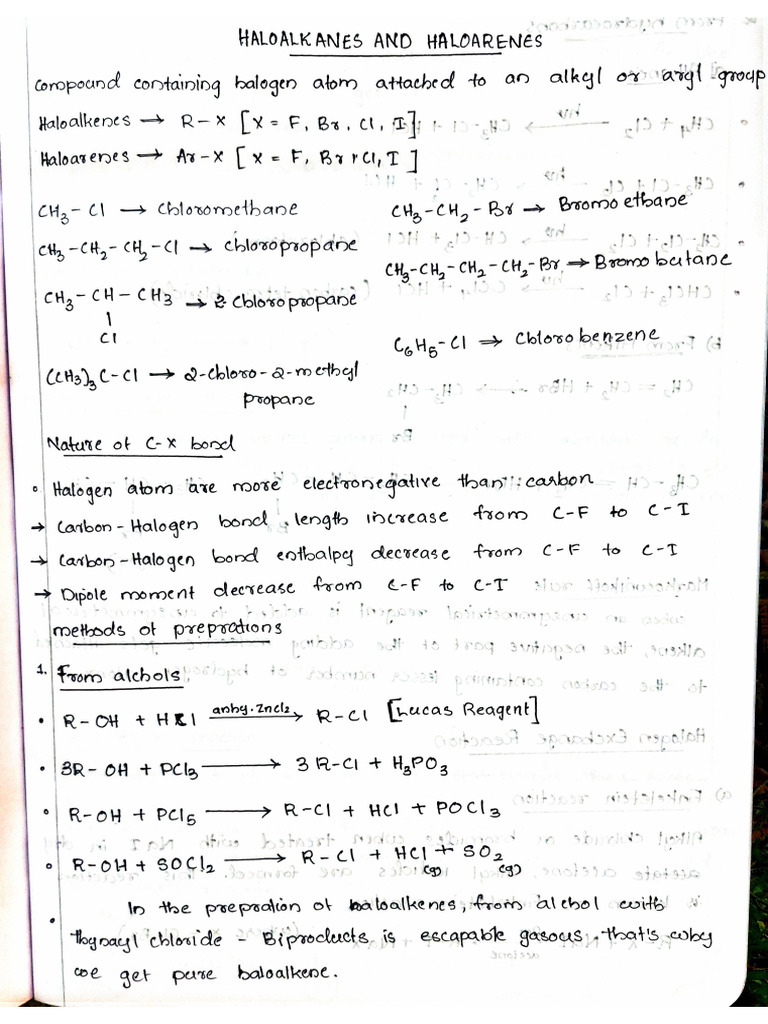 HALOALKANES AND HALOARENES
compound containing halogen atom attached to an alkyl or aryl group
Haloalkenes → R-X [X = F, Br, Cl, I]
Haloarenes → Ar-X [X = F, Br, Cl, I]
CH₃-Cl → Chloromethane
CH₃-CH₂-Br → Bromo ethane
CH₃-CH₂-CH₂-Cl → chloropropane
CH₃-CH₂-CH₂-CH₂-Br → Bromo butane
CH₃-CH-CH₃ → 2 Chloropropane
|
Cl
C₆H₅-Cl → Chlorobenzene
(CH₃)₃C-Cl → 2-chloro-2-methyl
propane
Nature of C-X bond
• Halogen atom are more electronegative than carbon
→ Carbon-Halogen bond length increase from C-F to C-I
→ Carbon-Halogen bond enthalpy decrease from C-F to C-I
→ Dipole moment decrease from C-F to C-I
methods of preprations
1. From alchols
• R-OH + HCl anhy. ZnCl₂ → R-Cl [Lucas Reagent]
• 3R-OH + PCl₃ → 3R-Cl + H₃PO₃
• R-OH + PCl₅ → R-Cl + HCl + POCl₃
• R-OH + SOCl₂ → R-Cl + HCl(g) + SO₂(g)
In the prepration of haloalkenes, from alchol with
• thynoyl chloride - Biproducts is escapable gasous. that's why
we get pure haloalkene.